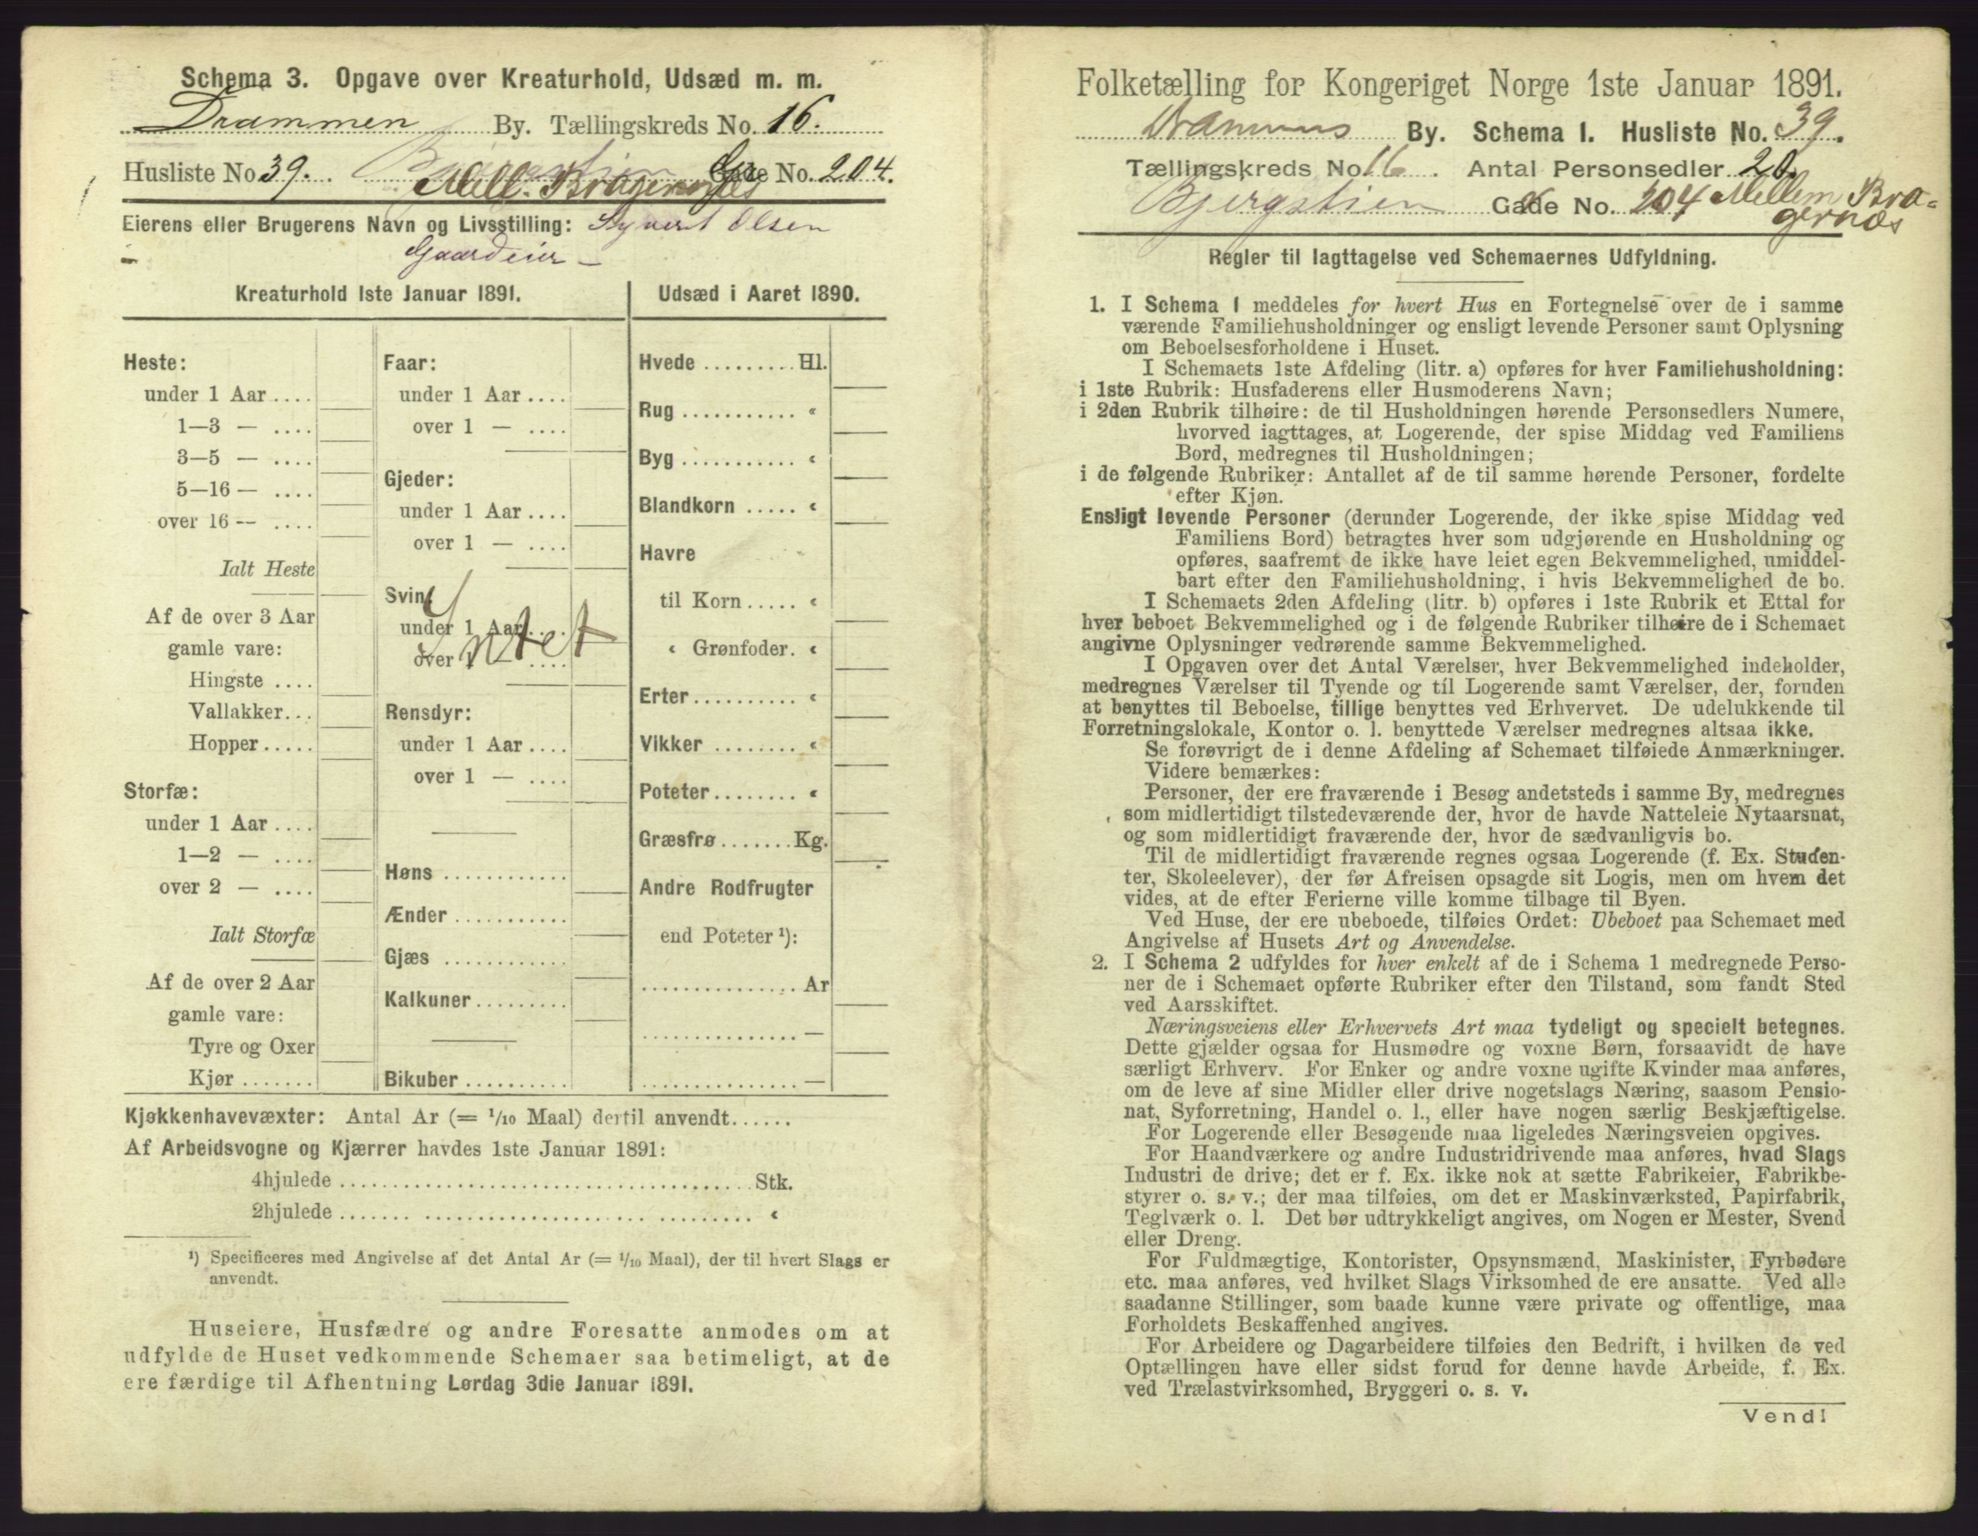 Schema 3. Opgave over Kreaturhold, Udsæd m. m.
Drammen By. Tællingskreds No. 16.
Husliste No 39. Bjergstien Gade No. 204.
Mell. Bragernæs
Eierens eller Brugerens Navn og Livsstilling: Syvert Olsen
Gaardeier
Kreaturhold 1ste Januar 1891.
Heste:
under 1 Aar ....
1—3 — ....
3—5 — ....
5—16 — ....
over 16 — ....
Ialt Heste
Af de over 3 Aar
gamle vare:
Hingste ....
Vallakker...
Hopper.....
Storfæ:
under 1 Aar ....
1—2 — ....
over 2 — ....
Ialt Storfæ
Af de over 2 Aar
gamle vare:
Tyre og Oxer
Kjør .......
Faar:
under 1 Aar ....
over 1 — ....
Gjeder:
under 1 Aar ....
over 1 — ....
Svin:
under 1 Aar ....
Intet
over 1 — ....
Rensdyr:
under 1 Aar ....
over 1 — ....
Høns ............
Ænder ...........
Gjæs ............
Kalkuner.........
Bikuber ..........
Udsæd i Aaret 1890.
Hvede ......... Hl.
Rug ........... «
Byg ........... «
Blandkorn ..... «
Havre
til Korn ..... «
« Grønfoder. «
Erter .......... «
Vikker ......... «
Poteter........ «
Græsfrø ....... Kg.
Andre Rodfrugter
end Poteter ¹):
............... Ar
............... —
............... —
Kjøkkenhavevæxter: Antal Ar (= 1/10 Maal) dertil anvendt......
Af Arbeidsvogne og Kjærrer havdes 1ste Januar 1891:
4hjulede ..................................... Stk.
2hjulede ..................................... «
¹) Specificeres med Angivelse af det Antal Ar (= 1/10 Maal), der til hvert Slags er
anvendt.
Huseiere, Husfædre og andre Foresatte anmodes om at
udfylde de Huset vedkommende Schemaer saa betimeligt, at de
ere færdige til Afhentning Lørdag 3die Januar 1891.
Folketælling for Kongeriget Norge 1ste Januar 1891.
Drammens By. Schema 1. Husliste No. 39.
Tællingskreds No. 16. Antal Personsedler 20.
Bjergstien Gade No. 204 Mellem Bra-
gernæs
Regler til Iagttagelse ved Schemaernes Udfyldning.
1. I Schema 1 meddeles for hvert Hus en Fortegnelse over de i samme
værende Familiehusholdninger og ensligt levende Personer samt Oplysning
om Beboelsesforholdene i Huset.
I Schemaets 1ste Afdeling (litr. a) opføres for hver Familiehusholdning:
i 1ste Rubrik: Husfaderens eller Husmoderens Navn;
i 2den Rubrik tilhøire: de til Husholdningen hørende Personsedlers Numere,
hvorved iagttages, at Logerende, der spise Middag ved Familiens
Bord, medregnes til Husholdningen;
i de følgende Rubriker: Antallet af de til samme hørende Personer, fordelte
efter Kjøn.
Ensligt levende Personer (derunder Logerende, der ikke spise Middag ved
Familiens Bord) betragtes hver som udgjørende en Husholdning og
opføres, saafremt de ikke have leiet egen Bekvemmelighed, umiddel-
bart efter den Familiehusholdning, i hvis Bekvemmelighed de bo.
I Schemaets 2den Afdeling (litr. b) opføres i 1ste Rubrik et Ettal for
hver beboet Bekvemmelighed og i de følgende Rubriker tilhøire de i Schemaet
angivne Oplysninger vedrørende samme Bekvemmelighed.
I Opgaven over det Antal Værelser, hver Bekvemmelighed indeholder,
medregnes Værelser til Tyende og til Logerende samt Værelser, der, foruden
at benyttes til Beboelse, tillige benyttes ved Erhvervet. De udelukkende til
Forretningslokale, Kontor o. l. benyttede Værelser medregnes altsaa ikke.
Se forøvrigt de i denne Afdeling af Schemaet tilføiede Anmærkninger.
Videre bemærkes:
Personer, der ere fraværende i Besøg andetsteds i samme By, medregnes
som midlertidigt tilstedeværende der, hvor de havde Natteleie Nytaarsnat,
og som midlertidigt fraværende der, hvor de sædvanligvis bo.
Til de midlertidigt fraværende regnes ogsaa Logerende (f. Ex. Studen-
ter, Skoleelever), der før Afreisen opsagde sit Logis, men om hvem det
vides, at de efter Ferierne ville komme tilbage til Byen.
Ved Huse, der ere ubeboede, tilføies Ordet: Ubeboet paa Schemaet med
Angivelse af Husets Art og Anvendelse.
2. I Schema 2 udfyldes for hver enkelt af de i Schema 1 medregnede Perso-
ner de i Schemaet opførte Rubriker efter den Tilstand, som fandt Sted
ved Aarsskiftet.
Næringsveiens eller Erhvervets Art maa tydeligt og specielt betegnes.
Dette gjælder ogsaa for Husmødre og voxne Børn, forsaavidt de have
særligt Erhverv. For Enker og andre voxne ugifte Kvinder maa anføres,
om de leve af sine Midler eller drive nogetslags Næring, saasom Pensio-
nat, Syforretning, Handel o. l., eller have nogen særlig Beskjæftigelse.
For Logerende eller Besøgende maa ligeledes Næringsveien opgives.
For Haandværkere og andre Industridrivende maa anføres, hvad Slags
Industri de drive; det er f. Ex. ikke nok at sætte Fabrikeier, Fabrikbe-
styrer o. s. v.; der maa tilføies, om det er Maskinværksted, Papirfabrik,
Teglværk o. l. Det bør udtrykkeligt angives, om Nogen er Mester, Svend
eller Dreng.
For Fuldmægtige, Kontorister, Opsynsmænd, Maskinister, Fyrbødere
etc. maa anføres, ved hvilket Slags Virksomhed de ere ansatte. Ved alle
saadanne Stillinger, som baade kunne være private og offentlige, maa
Forholdets Beskaffenhed angives.
For Arbeidere og Dagarbeidere tilføies den Bedrift, i hvilken de ved
Optællingen have eller sidst forud for denne havde Arbeide, f. Ex.
ved Trælastvirksomhed, Bryggeri o. s. v.
Vend!